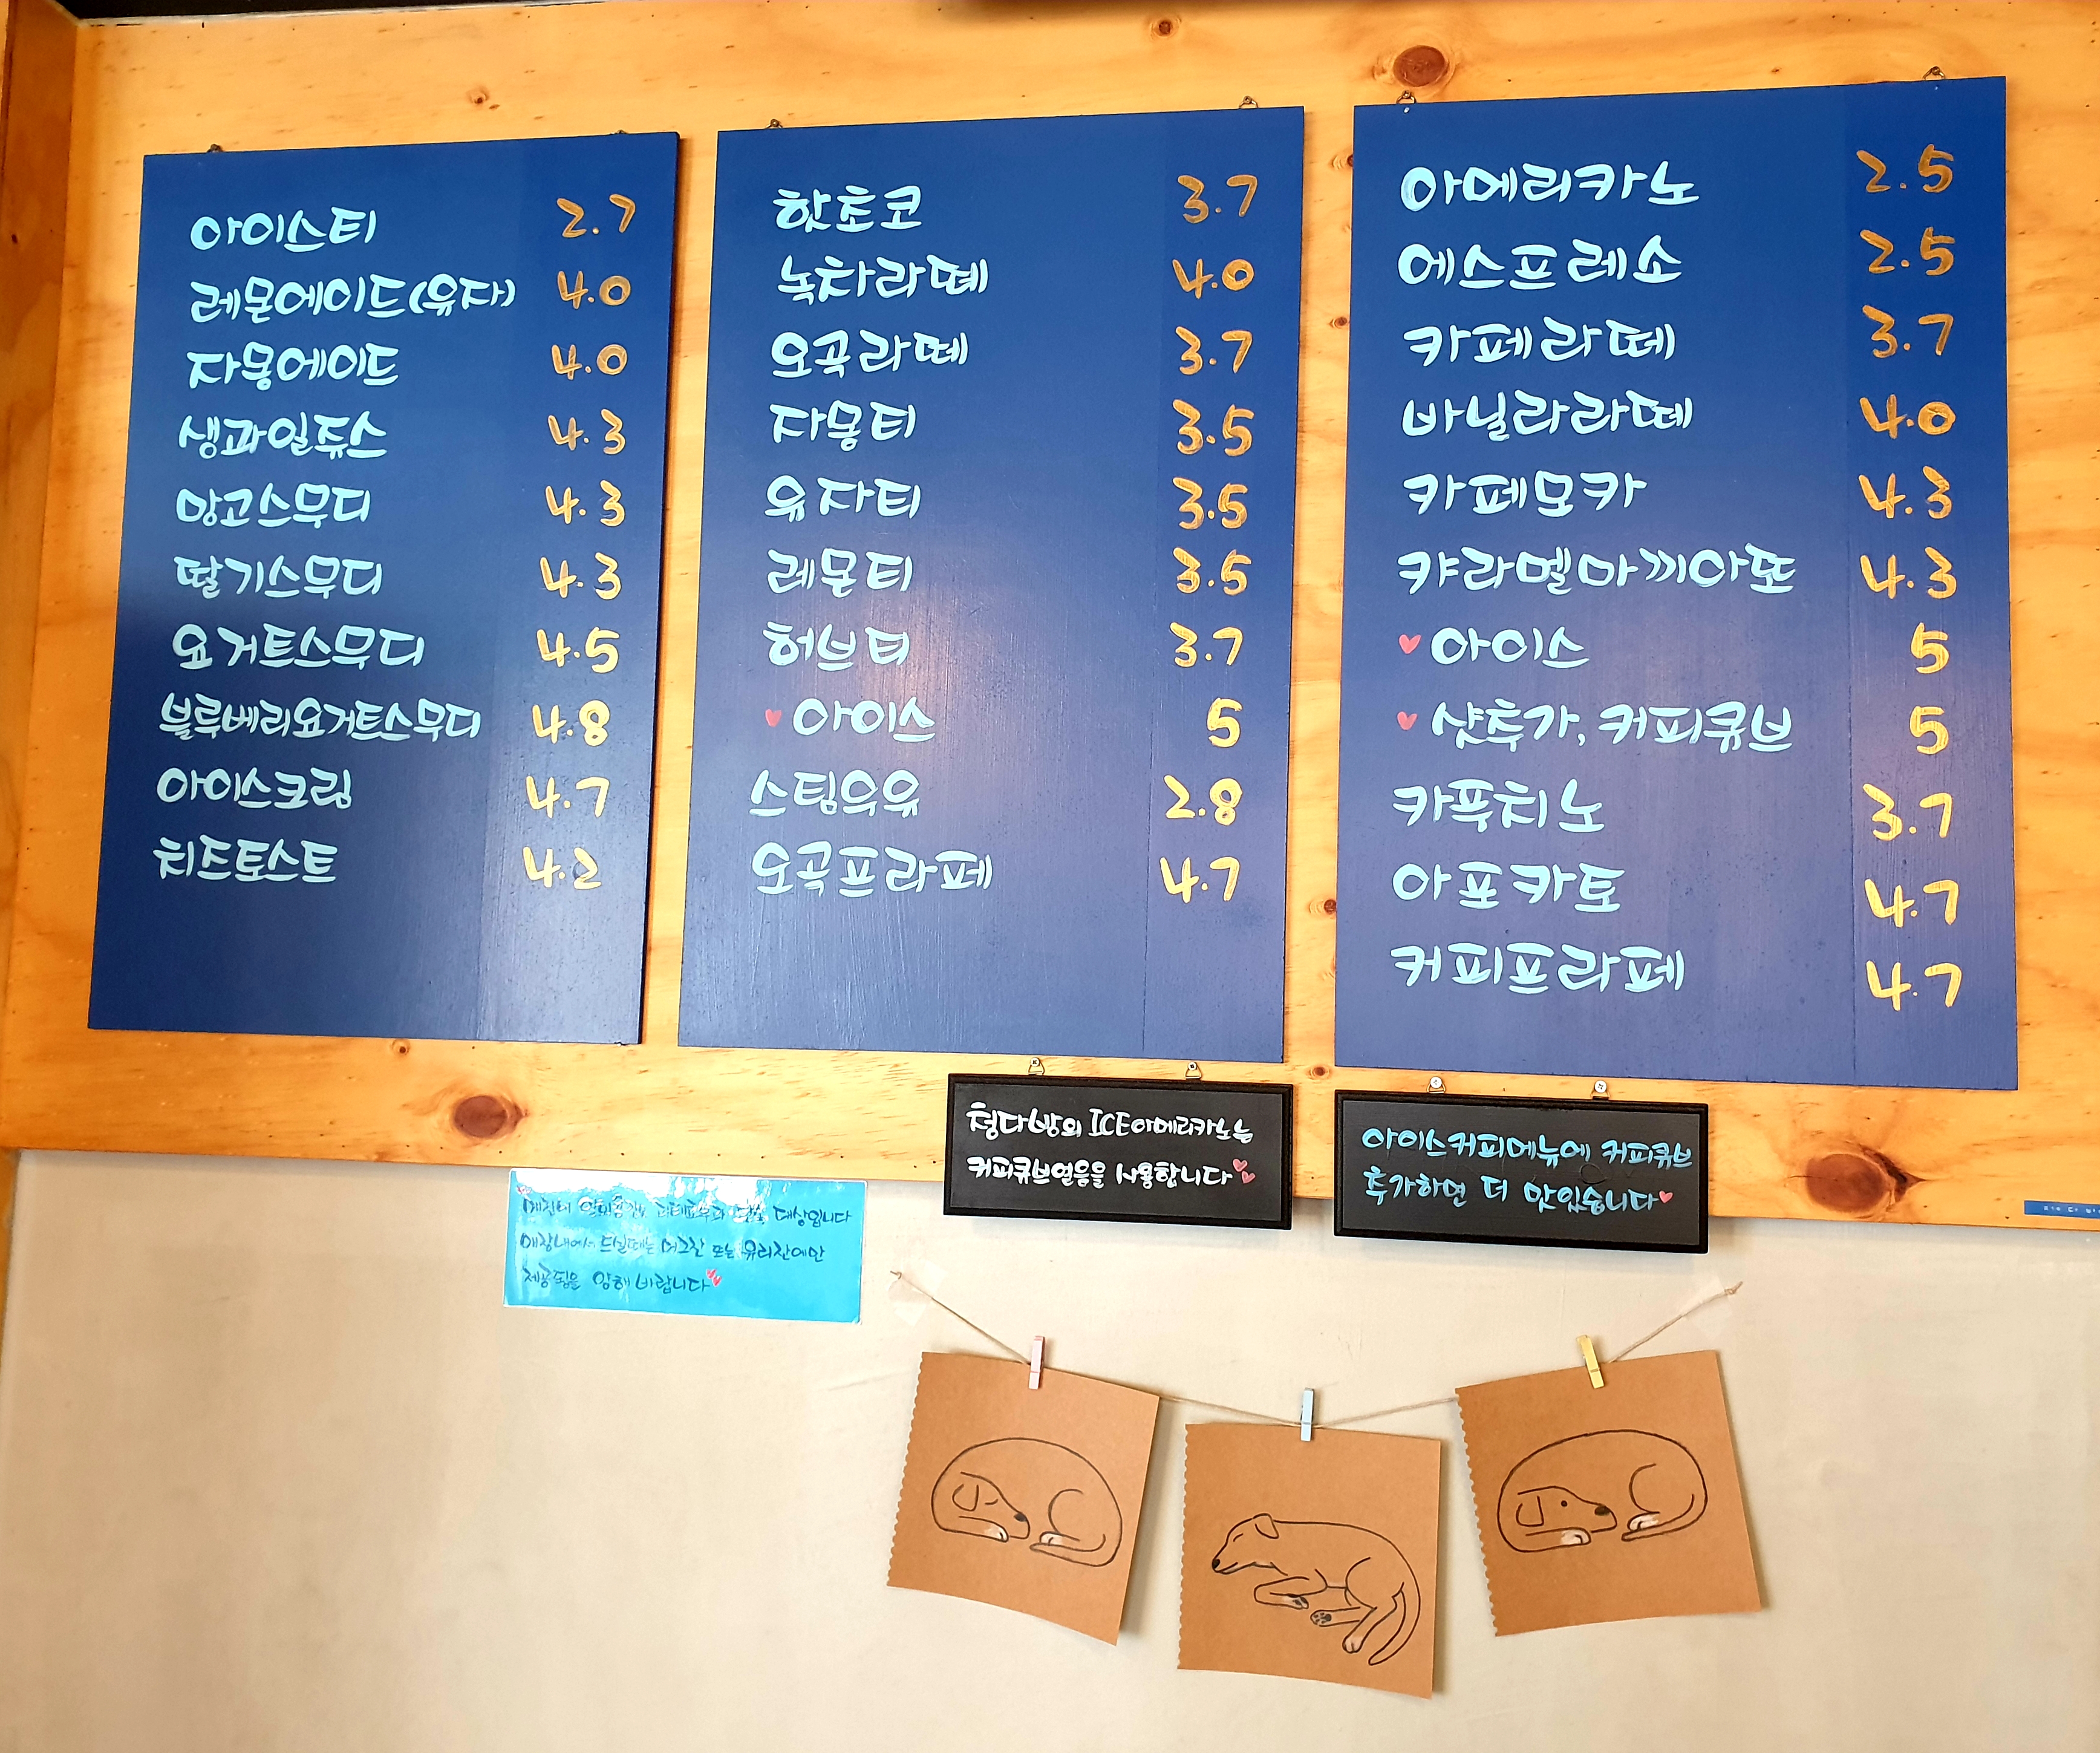 아이스티 2.7
레몬에이드(유자) 4.0
자몽에이드 4.0
생과일쥬스 4.3
망고스무디 4.3
딸기스무디 4.3
요거트스무디 4.5
블루베리요거트스무디 4.8
아이스크림 4.7
치즈토스트 4.2
핫초코 3.7
녹차라떼 4.0
오곡라떼 3.7
자몽티 3.5
유자티 3.5
레몬티 3.5
허브티 3.7
♥ 아이스 5
스팀우유 2.8
오곡프라페 4.7
아메리카노 2.5
에스프레소 2.5
카페라떼 3.7
바닐라라떼 4.0
카페모카 4.3
캬라멜마끼아또 4.3
♥ 아이스 5
♥ 샷추가, 커피큐브 5
카푸치노 3.7
아포카토 4.7
커피프라페 4.7
청다방의 ICE아메리카노는
커피큐브얼음을 사용합니다
아이스커피메뉴에 커피큐브
추가하면 더 맛있습니다♥
대상입니다
매장내에서 드실때는 머그잔 또는 유리잔에만
제공됨을 양해 바랍니다